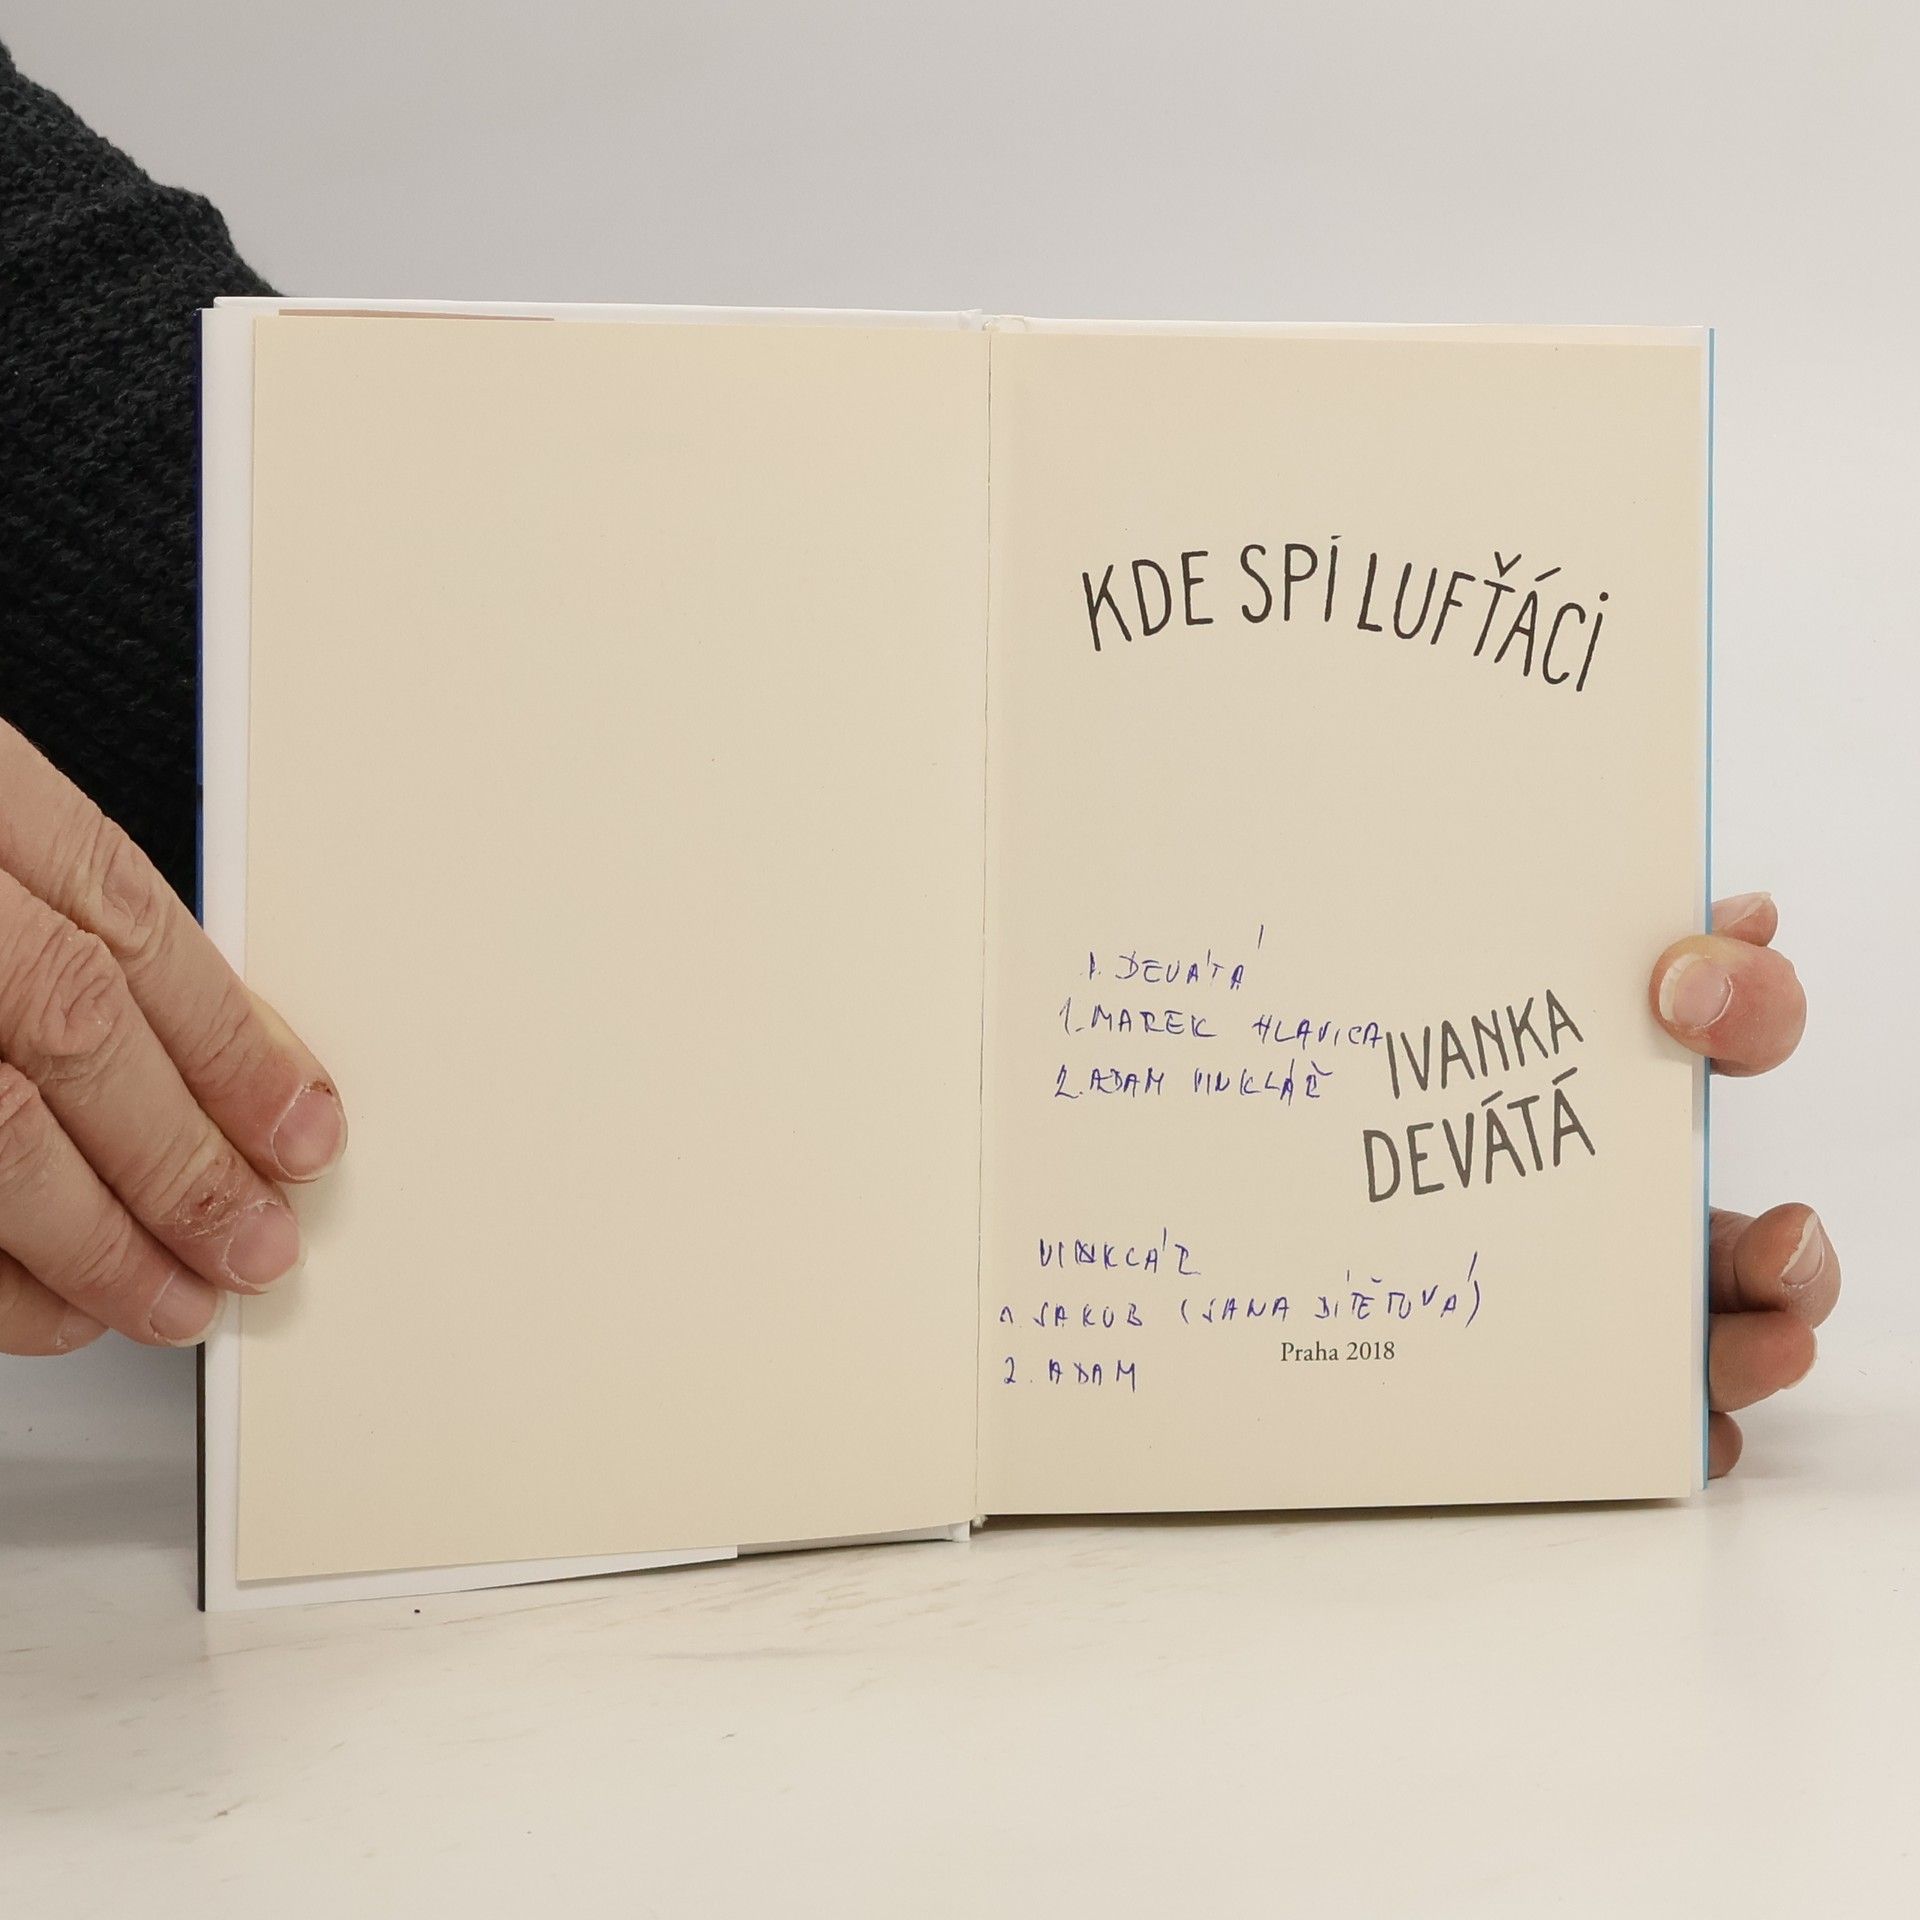 KDE SPÍ LUFŤÁCI
I. DEVÁTÁ
1. MAREK HLAVICA
2. ADAM VINKLÁŘ
IVANKA
DEVÁTÁ
VINKLÁŘ
1. JAKUB (JANA DÍTĚTOVÁ)
Praha 2018
2. ADAM